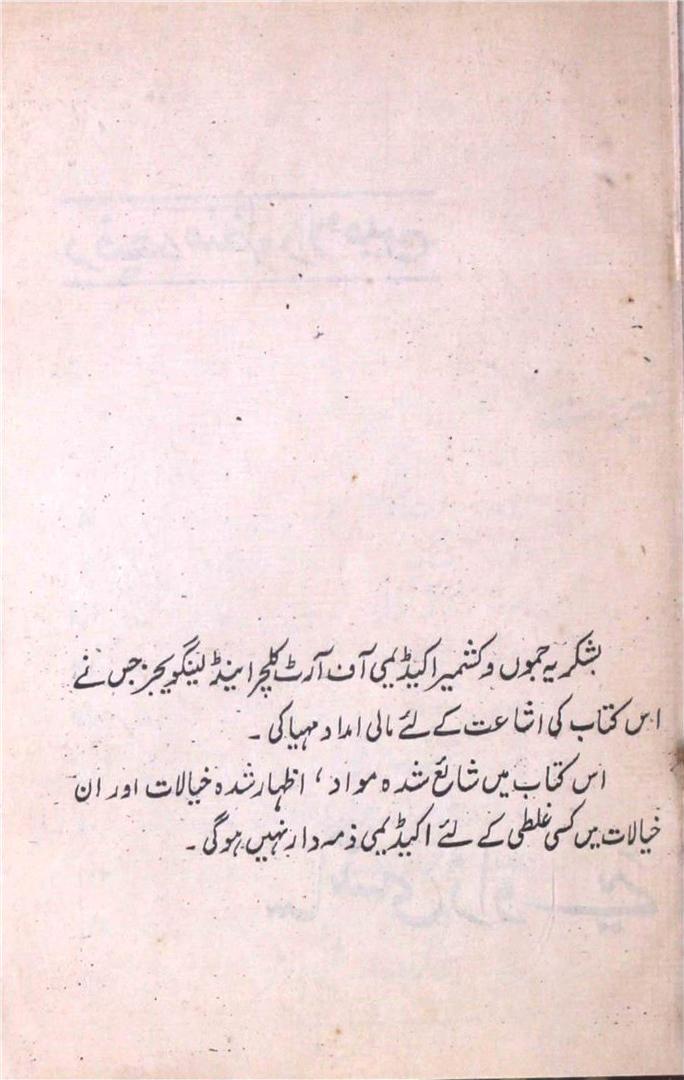 بشکریہ جموں و کشمیر اکیڈیمی آف آرٹ کلچر اینڈ لینگویجز جس نے
اس کتاب کی اشاعت کے لئے مالی امداد مہیا کی ۔
اس کتاب میں شائع شدہ مواد ، اظہار شدہ خیالات اور ان
خیالات میں کسی غلطی کے لئے اکیڈیمی ذمہ دار نہیں ہوگی ۔